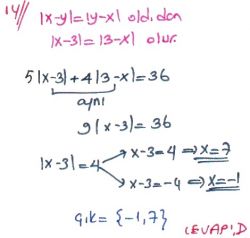 14// |x-y|=|y-x| old.dan
|x-3|=|3-x| olur.
5|x-3|+4|3-x|=36
aynı
9|x-3|=36
|x-3|=4 → x-3=4 ⇒ x=7
→ x-3=-4 ⇒ x=-1
Ç.K= {-1,7}
CEVAP:D